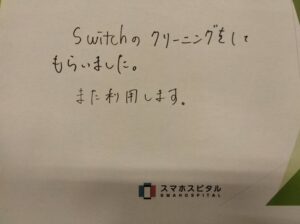 Switchの クリーニングをして
もらいました。
また利用します。
スマホスピタル
SMAHOSPITAL